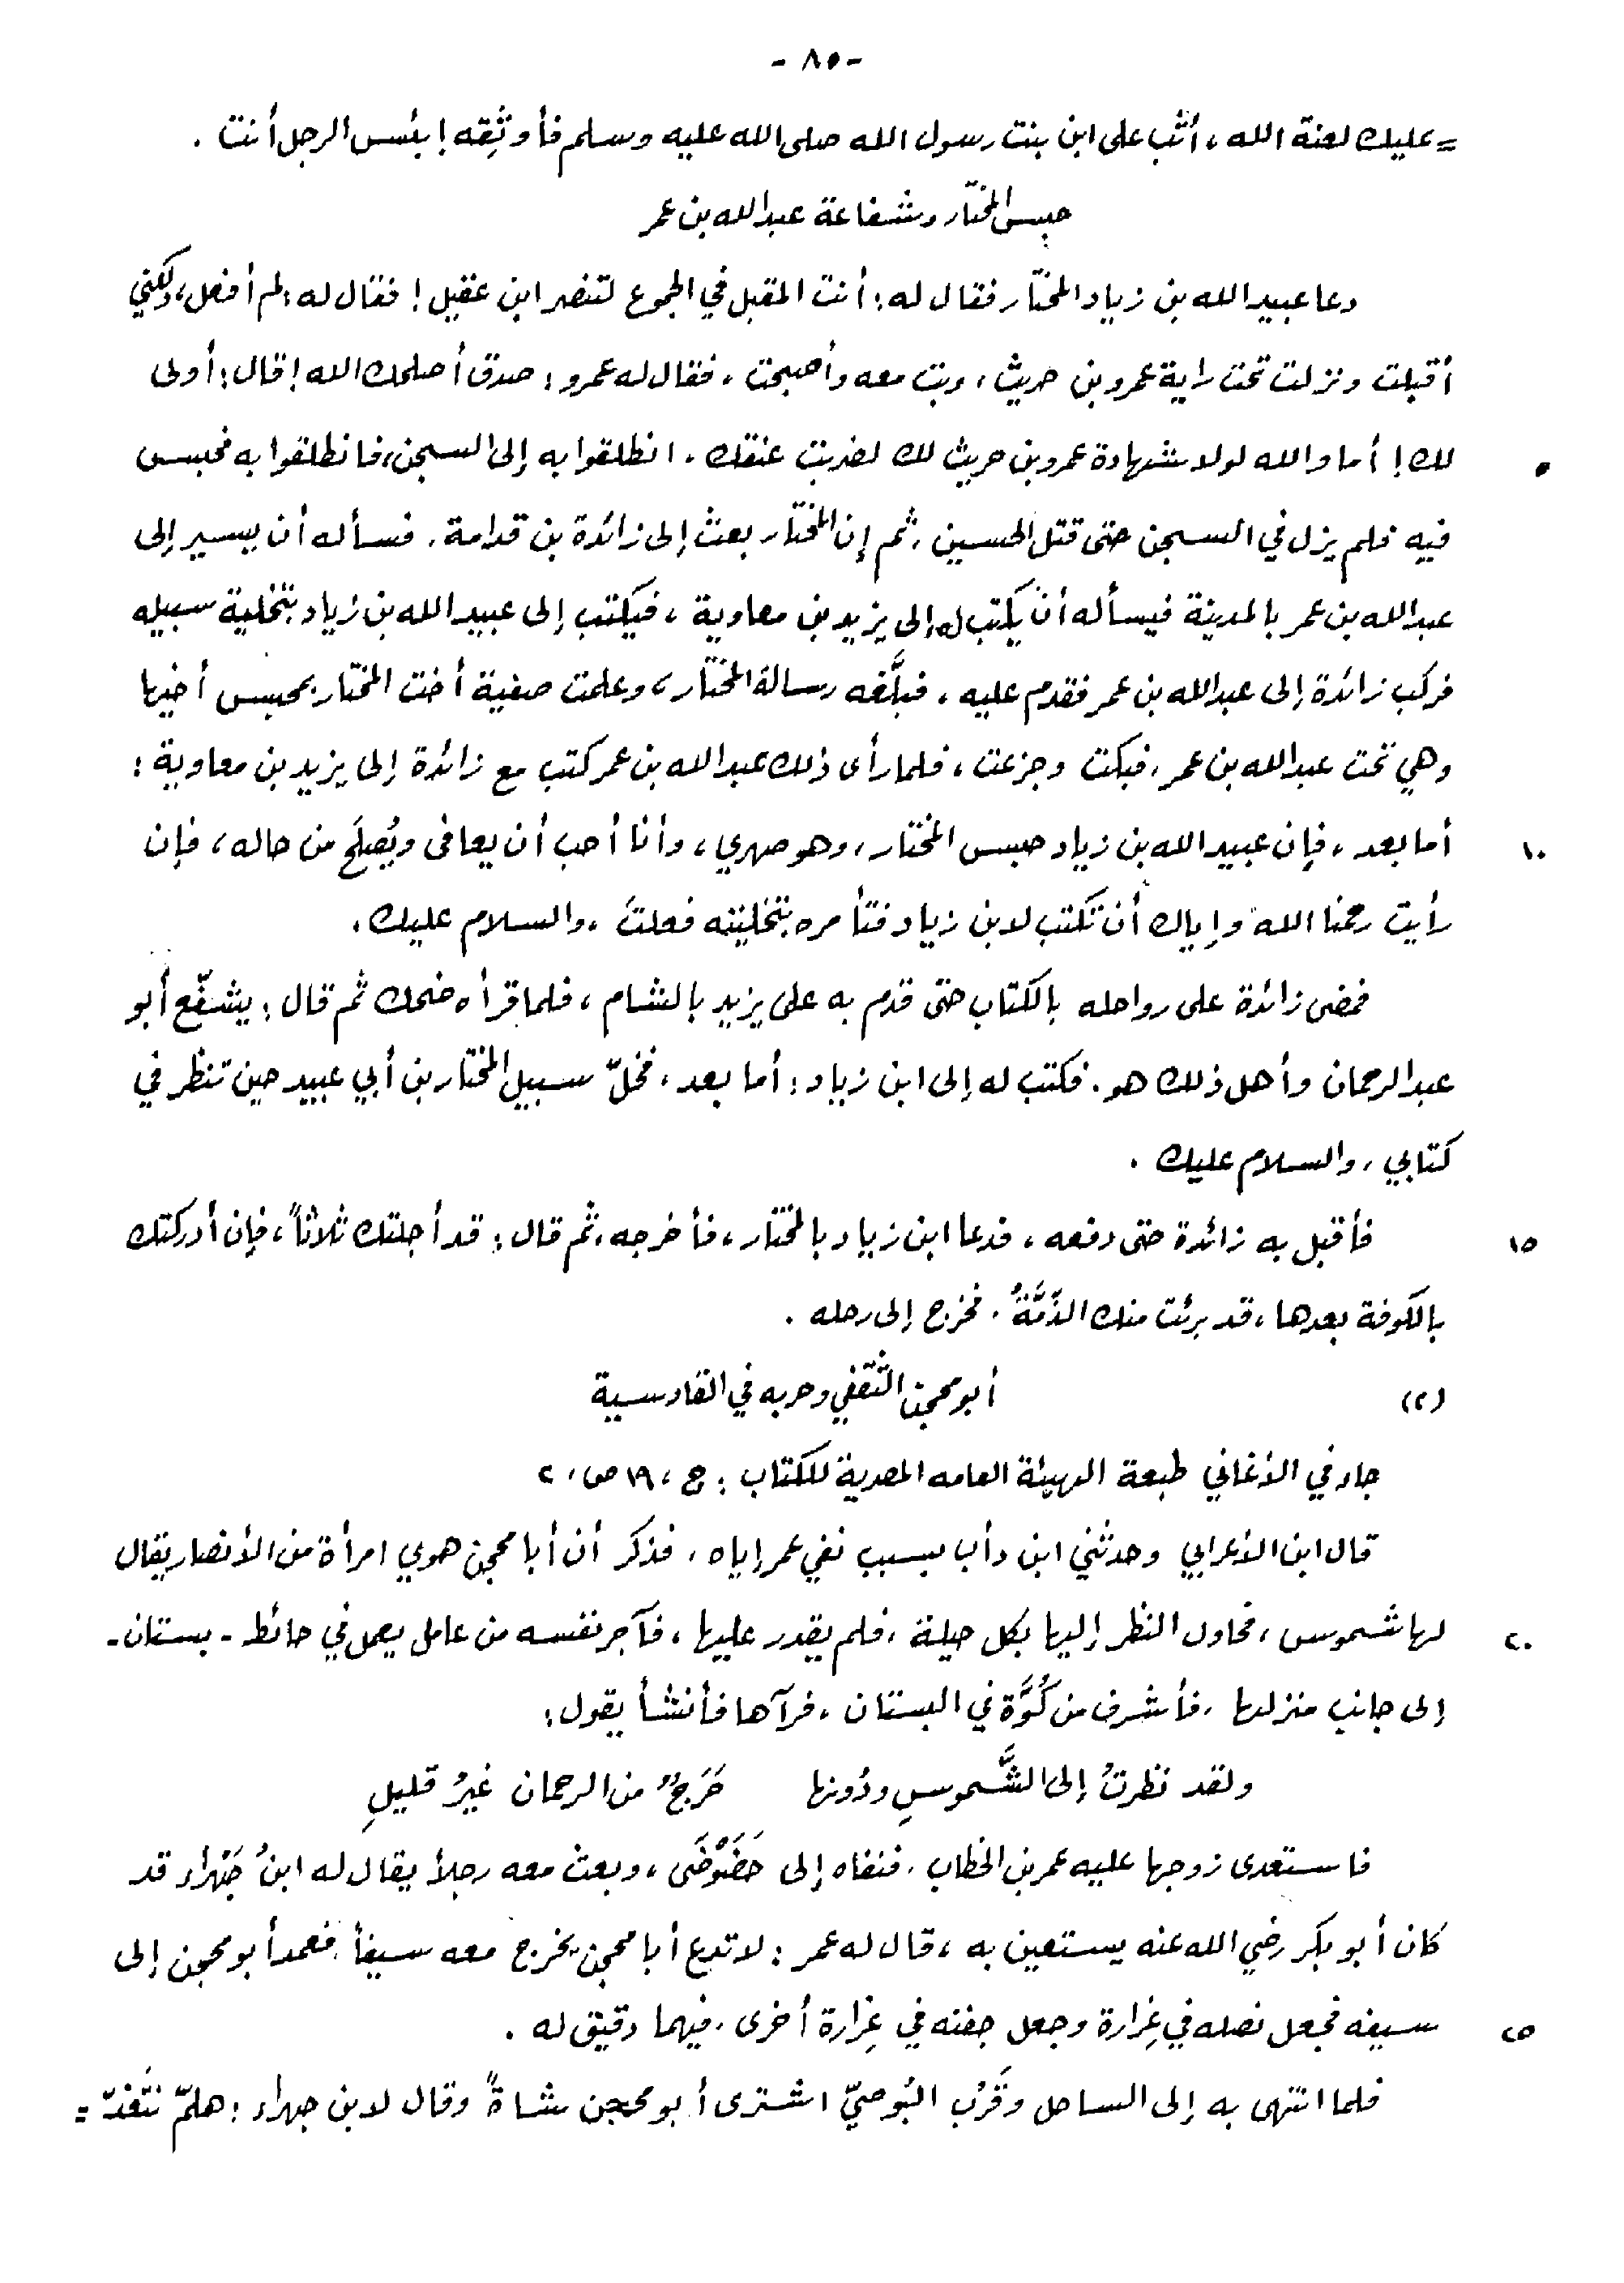 - ٨٥ -
= عليك لعنة الله ، أتَثِب على ابن بنت رسول الله صلى الله عليه وسلم فأوثِقه ! بئس الرجل أنت .
حبس المختار وشفاعة عبدالله بن عمر
دعا عبيدالله بن زياد المختار فقال له : أنت المقبل في الجموع لتنصر ابن عقيل ! فقال له : لم أفعل ، ولكني
أقبلت ونزلت تحت راية عمرو بن حريث ، وبت معه وأصبحت ، فقال له عمرو : صدق أصلحك الله ! قال : أولى
٥ لك ! أما والله لولا شهادة عمرو بن حريث لك لضربت عنقك . انطلقوا به إلى السجن ، فانطلقوا به فحبس
فيه فلم يزل في السجن حتى قتل الحسين ، ثم إن المختار بعث إلى زائدة بن قدامة ، فسأله أن يسير إلى
عبدالله بن عمر بالمدينة فيسأله أن يكتب له إلى يزيد بن معاوية ، فيكتب إلى عبيدالله بن زياد بتخلية سبيله
فركب زائدة إلى عبدالله بن عمر فقدم عليه ، فبلَّغه رسالة المختار ، وعلمت صفية أخت المختار بمحبس أخيها
وهي تحت عبدالله بن عمر ، فبكت وجزعت ، فلما رأى ذلك عبدالله بن عمر كتب مع زائدة إلى يزيد بن معاوية :
١٠ أما بعد ، فإن عبيدالله بن زياد حبس المختار ، وهو صهري ، وأنا أحب أن يعافى ويُصلَح من حاله ، فإن
رأيت رحمنا الله وإياك أن تكتب لابن زياد فتأمره بتخليته فعلتَ ، والسلام عليك .
فمضى زائدة على رواحله بالكتاب حتى قدم به على يزيد بالشام ، فلما قرأه ضحك ثم قال : يشفّع أبو
عبدالرحمان وأهل ذلك هو . فكتب له إلى ابن زياد : أما بعد ، فخلّ سبيل المختار بن أبي عبيد حين تنظر في
كتابي ، والسلام عليك .
١٥ فأقبل به زائدة حتى دفعه ، فدعا ابن زياد بالمختار ، فأخرجه ، ثم قال : قد أجلتك ثلاثاً ، فإن أدركتك
بالكوفة بعدها ، قد برئت منك الذِّمَّةُ . فخرج إلى رحله .
(٢) أبو محجن الثّقفي وحربه في القادسية
جاء في الأغاني طبعة الهيئة العامه المصرية للكتاب : ج ، ١٩ ص ، ٢
قال ابن الأعرابي وحدثني ابن دأب بسبب نفي عمر إياه ، فذكر أن أبا محجن هوي امرأة من الأنصار يقال
٢٠ لها شموس ، فحاول النظر إليها بكل حيلة ، فلم يقدر عليها ، فآجر نفسه من عامل يعمل في حائط - بستان -
إلى جانب منزلها ، فأشرف من كُوَّة في البستان ، فرآها فأنشأ يقول :
ولقد نظرتُ إلى الشَّموسِ ودُونها حَرَجٌ من الرحمان غيرُ قليلِ
فاستعدى زوجها عليه عمر بن الخطاب ، فنفاه إلى حَضَوْضَى ، وبعث معه رجلاً يقال له ابنُ جَهْراء قد
كان أبو بكر رضي الله عنه يستعين به ، قال له عمر : لا تدع أبا محجن يخرج معه سيفاً . فعمد أبو محجن إلى
٢٥ سيفه فجعل نصله في غِرارة وجعل جفنه في غِرارة أخرى ، فيهما دقيق له .
فلما انتهى به إلى الساحل وقَرُب البُوصيّ اشترى أبو محجن شاةً وقال لابن جهراء : هلمّ نتَغدّ =